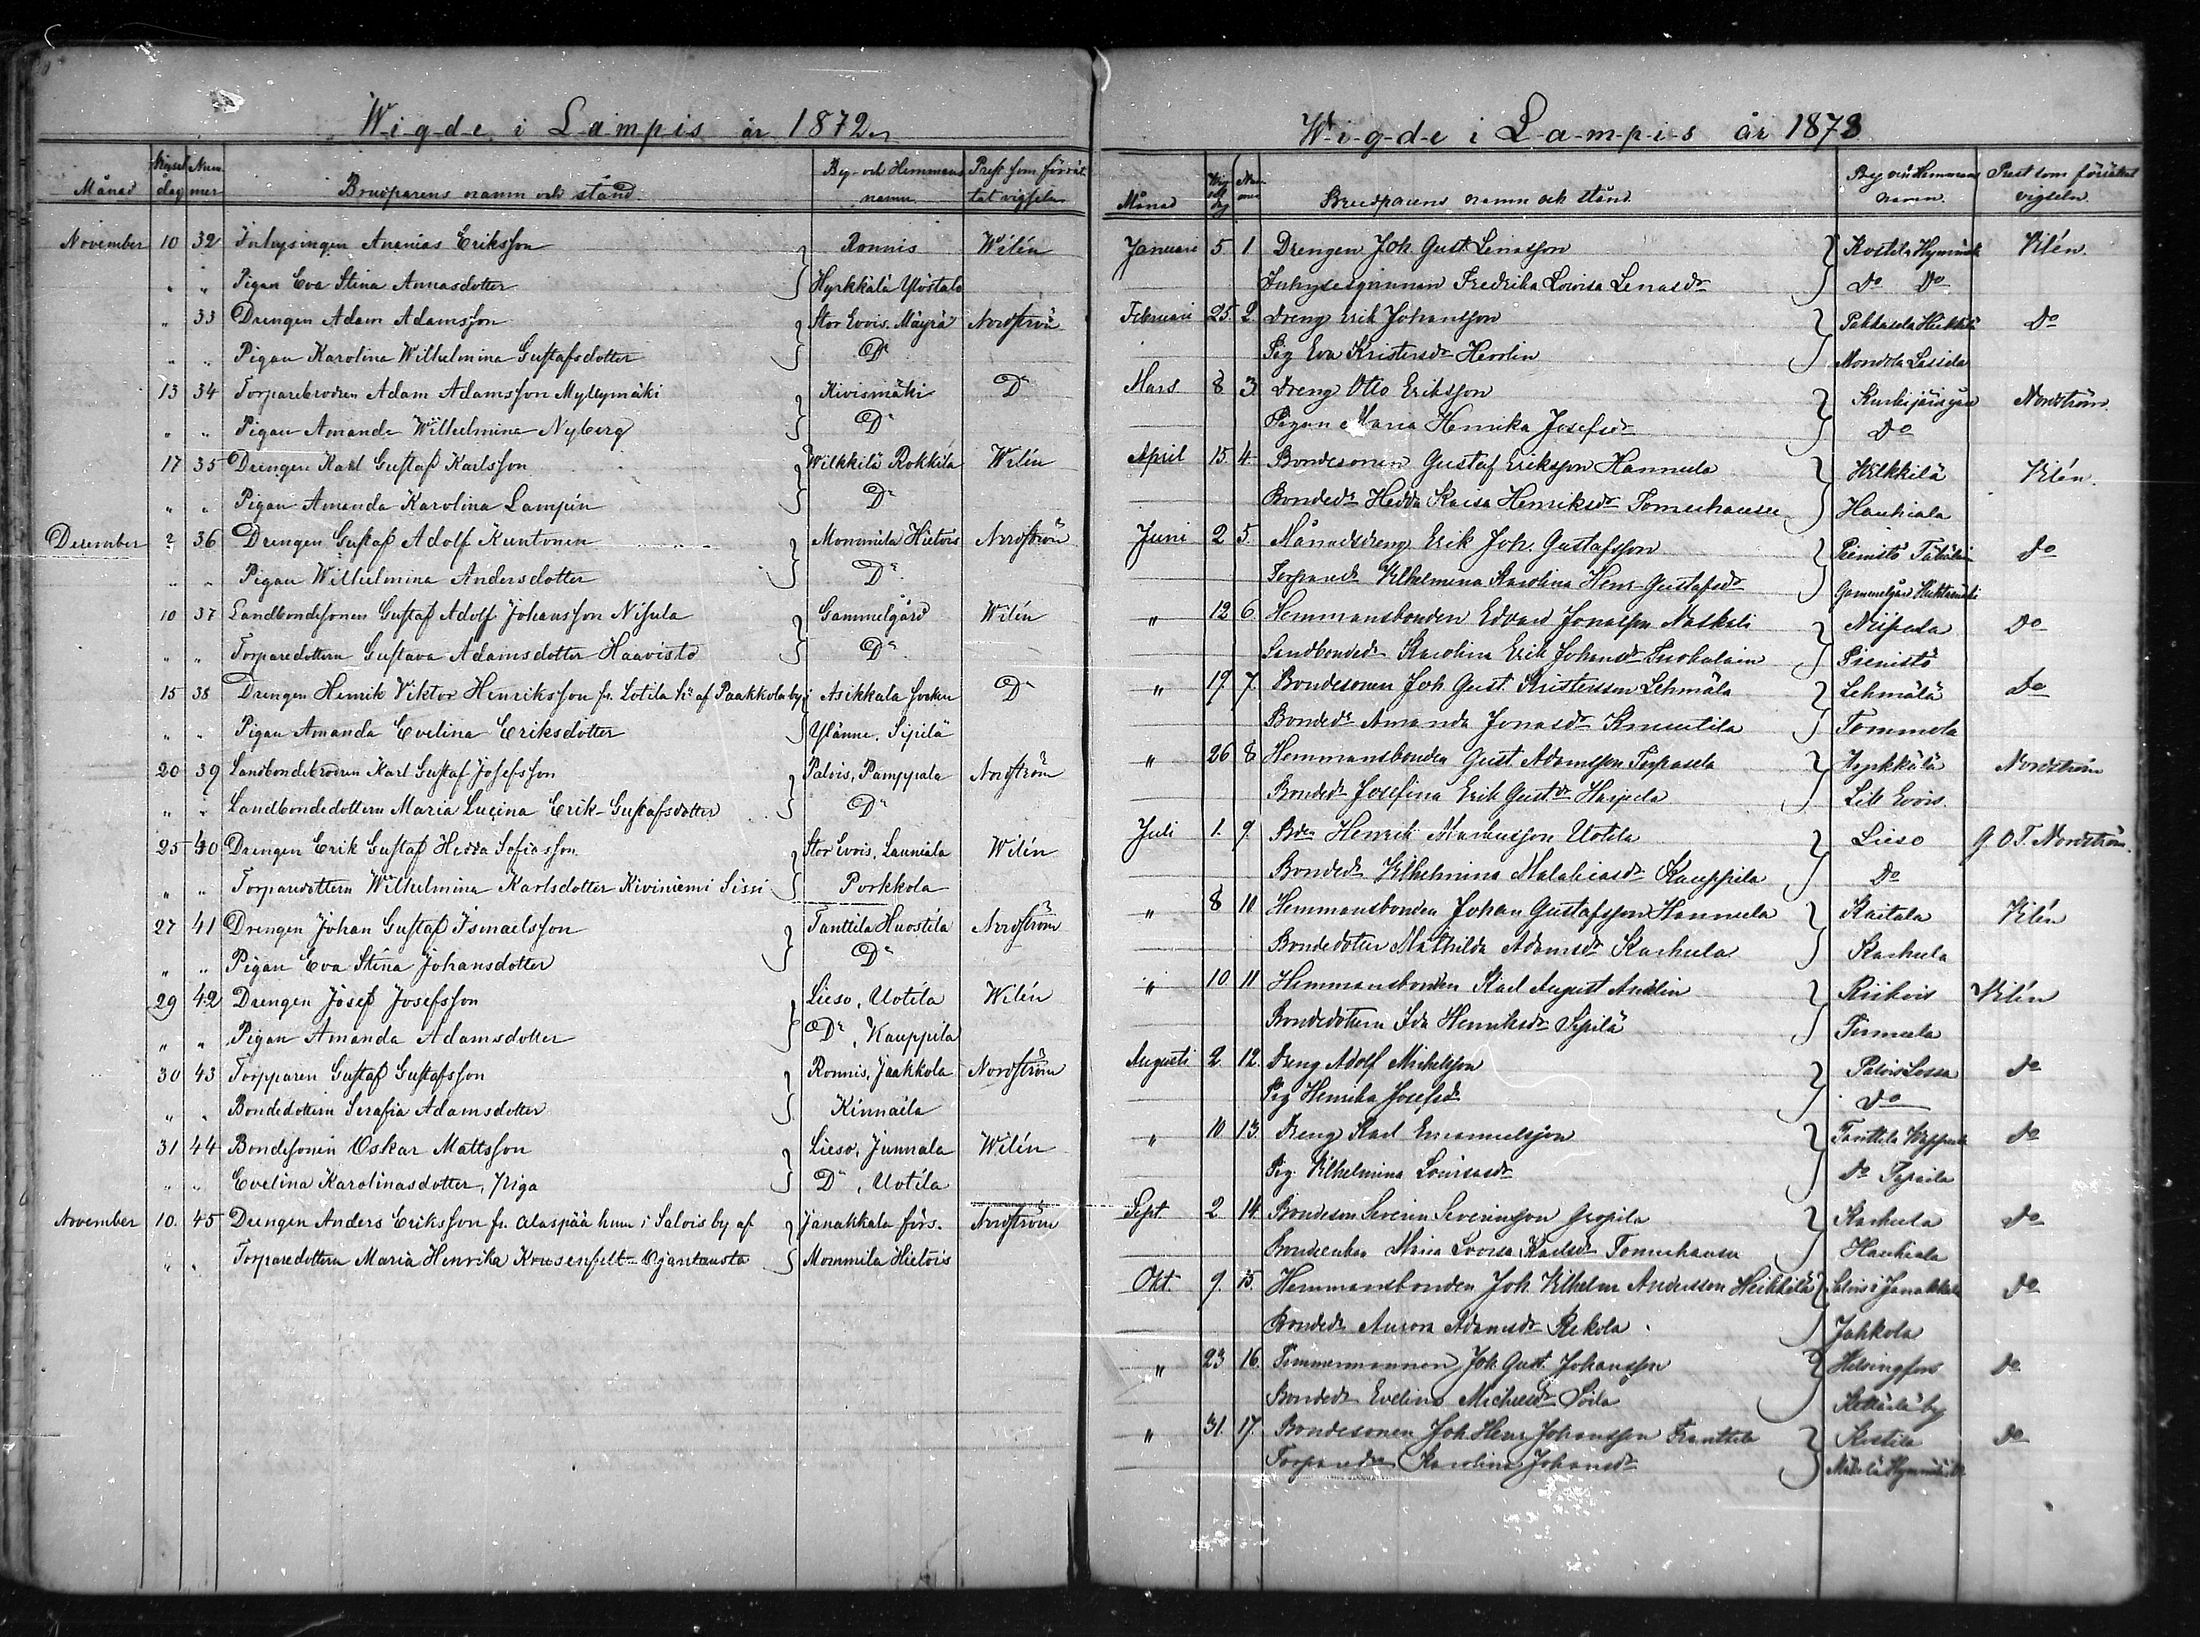 Wigde i Lampis år 1872.
Månad Vigsel dag Num mer Brudparens namn och stånd. By- och Hemmans namn Prest som förrät tat vigseln
November 10 32 Inhysingen Ananias Eriksson Ronnis Wilén
" " Pigan Eva Stina Annasdotter Hyrkkälä Ylöstalo
" 33 Drengen Adam Adamsson Stor Evois. Mäyrä Nordström
" " Pigan Karolina Wilhelmina Gustafsdotter Do
13 34 Torparebrodren Adam Adamsson Myllymäki Kivismäki Do
" " Pigan Amanda Wilhelmina Nyberg Do
17 35 Drengen Karl Gustaf Karlsson Wilkkilä Rokkila Wilén
" " Pigan Amanda Karolina Lampén Do
December 2 36 Drengen Gustaf Adolf Kuntonen Mommila Hietois Nordström
" " Pigan Wilhelmina Andersdotter Do
10 37 Landbondesonen Gustaf Adolf Johansson Nisula Gammelgård Wilén
" " Torparedottern Gustava Adamsdotter Haavisto Do
15 38 Drengen Henrik Viktor Henriksson fr. Lotila hn af Paakkola by i Asikkala socken Do
" " Pigan Amanda Evelina Eriksdotter Ylänne. Sipilä
20 39 Landbondebrodren Karl Gustaf Josefsson Palois, Pamppala Nordström
" " Landbondedottern Maria Lucina Erik-Gustafsdotter Do
25 40 Drengen Erik Gustaf Hedda Sofiasson Stor Evois, Launiala Wilén
" " Torparedottern Wilhelmina Karlsdotter Kiviniemi Sissi Porkkola
27 41 Drengen Johan Gustaf Ismaelsson Tanttila Huostila Nordström
" " Pigan Eva Stina Johansdotter Do
29 42 Drengen Josef Josefsson Lieso, Uotila Wilén
" " Pigan Amanda Adamsdotter Do, Kauppila
30 43 Torpparen Gustaf Gustafsson Ronnis, Jaakkola Nordström
" " Bondedottern Serafia Adamsdotter Kinnala
31 44 Bondesonen Oskar Mattsson Lieso, Junnala Wilén
" " Evelina Karolinasdotter, Piga Do, Uotila
November 10. 45 Drengen Anders Eriksson fr. Alaspää hmn i Salois by af Janakkala förs. Nordström
" " Torparedottern Maria Henrika Krusenfelt Ojantausta Mommila Hietois
Wigde i Lampis år 1873
Månad Vig sel dag Num mer Brudparens namn och stånd. By och Hemmans namn. Prest som förrättat vigseln.
Januari 5 1 Drengen Joh. Gust. Lenasson Kostila Wilén.
Inhysesqvinnan Fredrika Lovisa Lenasdr Do Do
Februari 25 2 Dreng Erik Johansson Pakkasela Heikkilä Do
Pig Eva Kristersdr Herrlin Lassila
Mars 8 3 Dreng Otto Eriksson Nordström.
Pigan Maria Henrika Josefsdr Do
April 15. 4. Bondesonen Gustaf Eriksson Hannula Wilkkilä Wilén.
Bondedr Hedda Kaisa Henriksdr Tomerhausen Haukiala
Juni 2 5. Månadsdreng Erik Joh. Gustafsson Pienistö Do
Torparedr Wilhelmina Karolina Henr. Gustafsdr Gammelgård
" 12 6. Hemmansbonden Edvard Jonasson Naskali Do
Landbondedr Karolina Erik Johansdr Pienistö
" 19 7. Bondesonen Joh. Gust. Kristersson Lehmälä Lehmälä Do
Bondedr Amanda Jonasdr Knuutila Tommola
" 26 8 Hemmansbonden Gust. Adamsson Hyrkkälä Nordström
Bondedr Josefina Erik Gustdr Lill Evois.
Juli 1. 9. Bden Henrik Markusson Uotila Lieso G. O. T. Nordström.
Bondedr Wilhelmina Malakiasdr Kauppila Do
" 8 10 Hemmansbonden Johan Gustafsson Hannula Kaitala Wilén
Bondedottern Mathilda Adamsdr Karhula Karhula
" 10 11 Hemmansbonden Karl August Wilén
Bondedottern Ida Henriksdr Sipilä
Augusti 2. 12. Dreng Adolf Michelsson Palois Lossa Do
Pig Henrika Josefsdr Do
" 10 13. Dreng Karl Emanuelsson Tanttila Do
Pig. Wilhelmina Lovisasdr Do
Sept 2 14. Bondeson Severin Severinsson Karhula Do
Mina Lovisa Karlsdr Tomerhausen Haukiala
Okt. 9. 15. Hemmansbonden Joh. Wilhelm Andersson Heikkilä Salois i Janakkala Do
Bondedr Aurora Adamsdr Rekola Jahkola
" 23 16. Timmermannen Joh. Gust. Johansson Helsingfors Do
Bondedr Evelina Michelsdr by
" 31. 17. Bondesonen Joh. Henr. Johansson Tranttila Kostila Do
Torparedr Karolina Johansdr